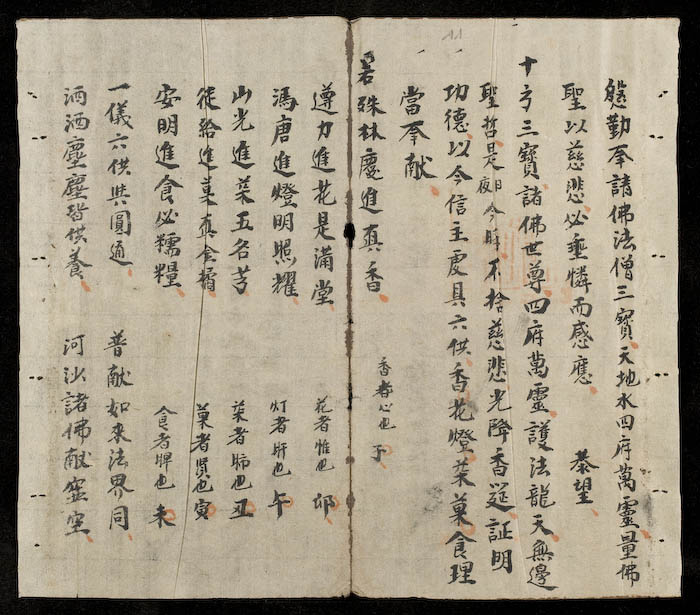 慇勤奉請佛法僧三寶天地水四府萬靈量佛
聖以慈悲必垂憐而感應 恭望
十方三寶諸佛世尊四府萬靈護法龍天無邊
聖哲是日夜今時不捨慈悲光降香筵証明
功德以今信主虔具六供香花燈菜菓食理
當奉献
若殊林慶進真香 香者心也 子
遵力進花是滿堂 花者惟也 卯
馮唐進燈明照耀 灯者肝也 午
山光進菜五名芳 菜者肺也 丑
徒給進菓真金橘 菓者賢也 寅
安明進食必糯糧 食者脾也 未
一儀六供共圓通 普献如來法界同
洒洒塵塵皆供養 河沙諸佛献虛空